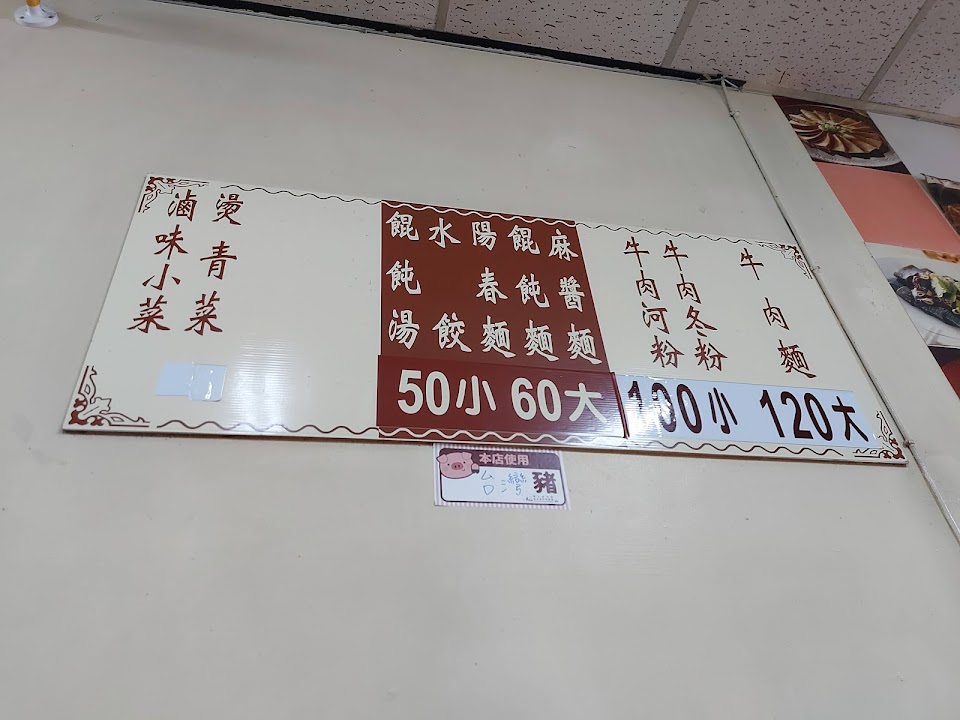 牛肉麵
牛肉冬粉
牛肉河粉
100小 120大
麻醬麵
餛飩麵
陽春麵
水餃
餛飩湯
50小 60大
燙青菜
滷味小菜
本店使用
台灣豬